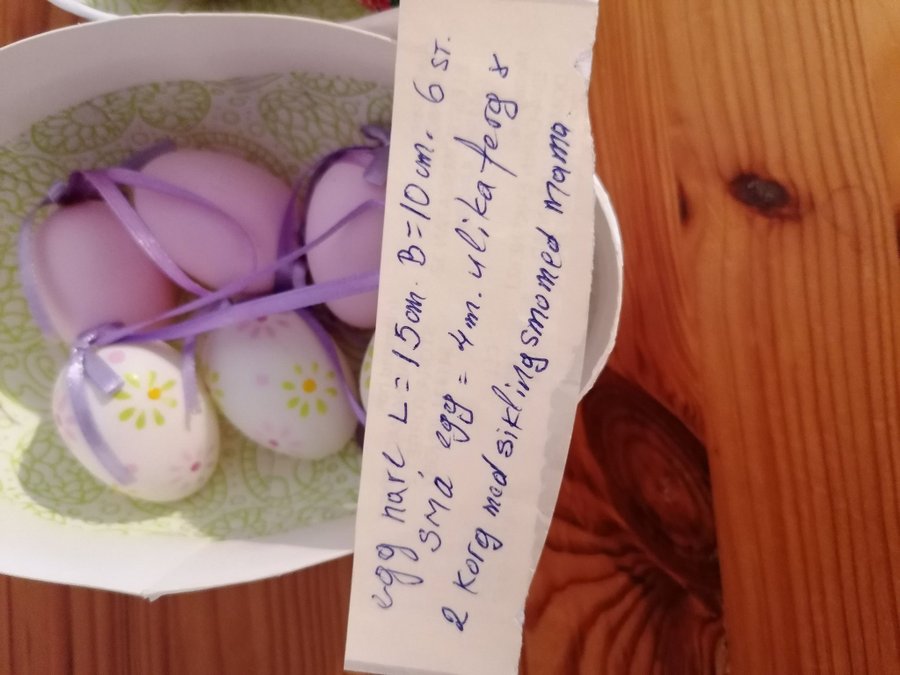 egg harl L = 15 cm. B = 10 cm. 6 ST.
SMÅ egg = 4 m. ulika ferg 8
2 korg med siklingsmomed mama.